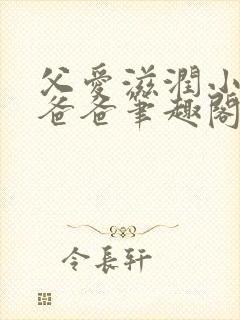 父愛滋潤小
爸爸筆趣閣
令長軒